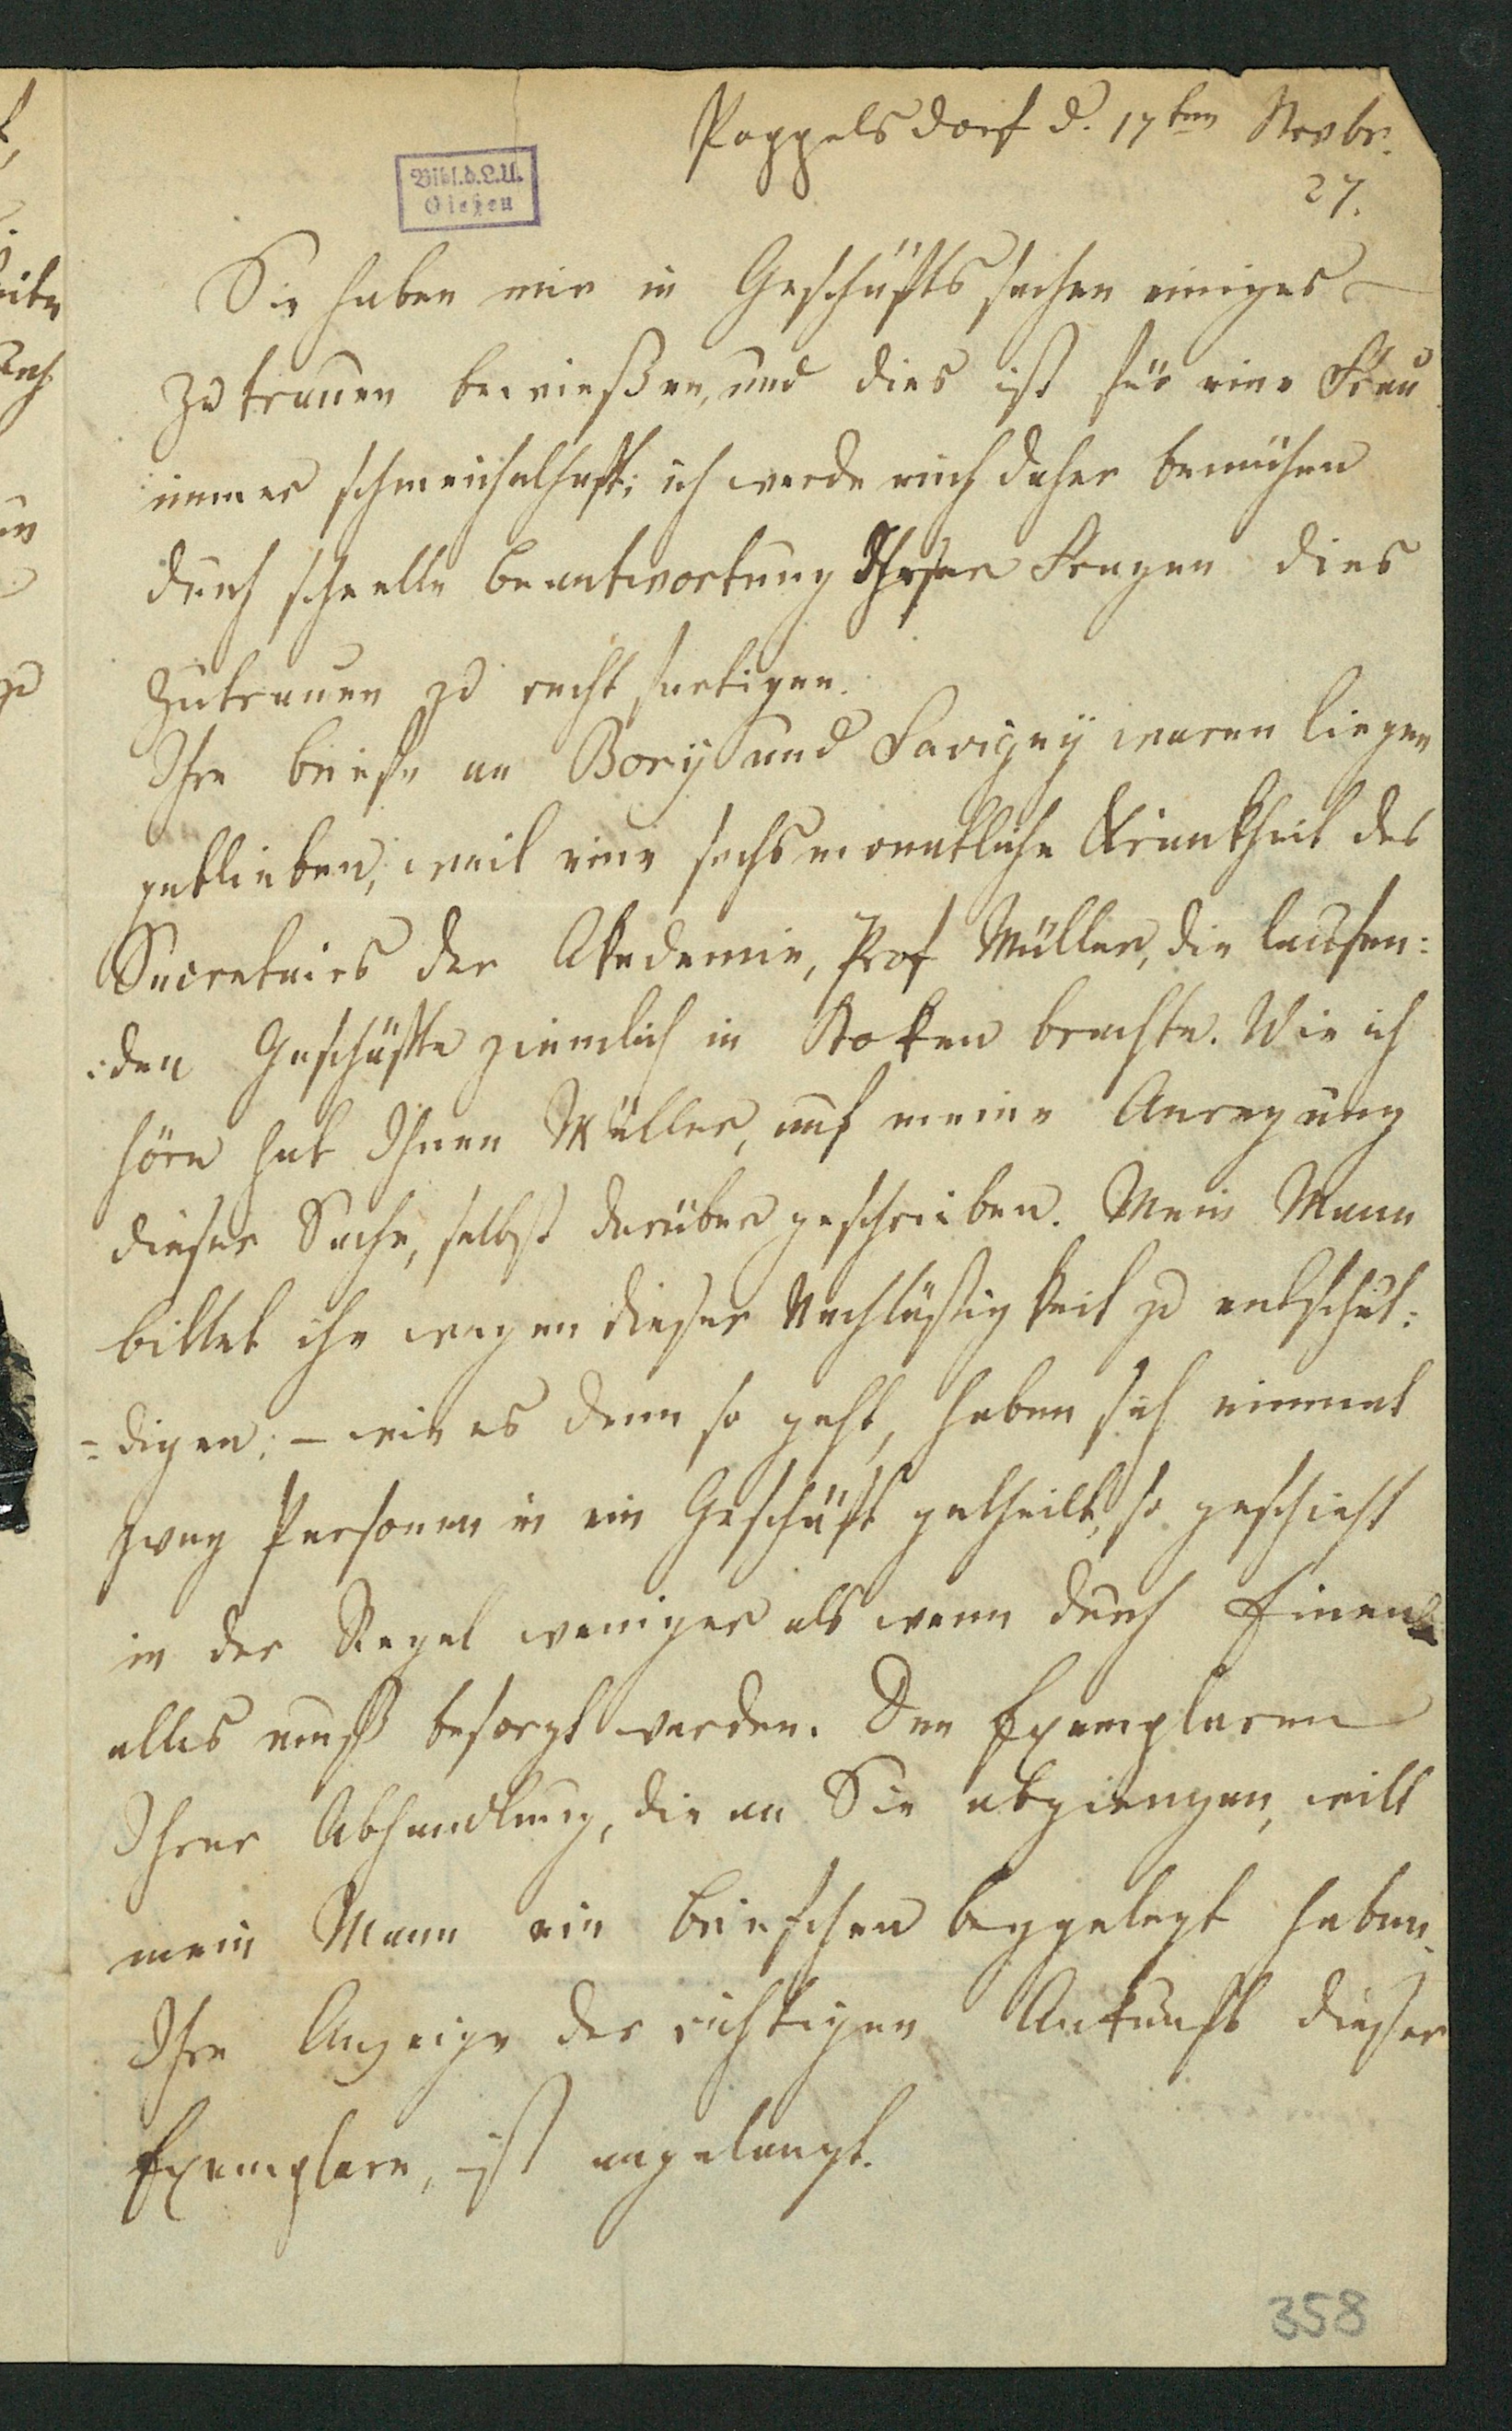 Poppelsdorf d. 17ten Novbr.
27.
Bibl. d. L. U.
Gießen
Sie haben mir in Geschäftssachen einiges
Zutrauen bewießen, und dies ist für eine Frau
immer schmeichelhaft; ich werde mich daher bemühen
durch schnelle Beantwortung Ihrer Fragen dies
Zutrauen zu rechtfertigen.
Ihre Briefe an Bory und Savigny waren liegen
geblieben, weil eine sechsmonatliche Krankheit des
Secretairs der Akademie, Prof Müller, die laufen:
:den Geschäfte ziemlich in Stoken brachte. Wie ich
höre hat Ihnen Müller, auf meine Anregung
dieser Sache, selbst darüber geschrieben. Mein Mann
bittet ihn wegen dieser Nachläßigkeit zu entschul:
=digen; – wie es denn so geht, haben sich einmal
zwey Personen in ein Geschäft getheilt, so geschieht
in der Regel weniger als wenn durch Einen
alles muß besorgt werden. Den Exemplaren
Ihrer Abhandlung, die an Sie abgiengen, will
mein Mann ein Briefchen beygelegt haben.
Ihre Anzeige der richtigen Ankunft dieser
Exemplare, ist angelangt.
358